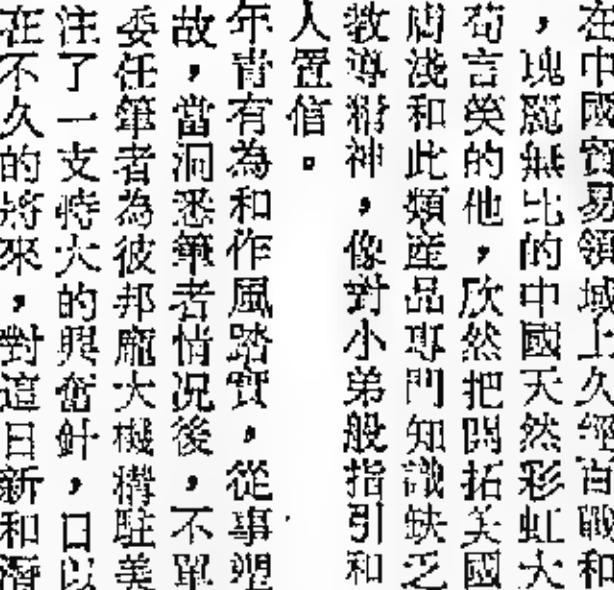 在中國貿易領域上久經百戰和
，瑰麗無比的中國天然彩虹大
苟言笑的他，欣然把開拓美國
膚淺和此類產品專門知識缺乏
教導精神，像對小弟般指引和
人置信。
年青有為和作風踏實，從事塑
故，當洞悉筆者情況後，不單
委任筆者為彼邦龐大機構駐美
注了一支特大的興奮針，日以
在不久的將來，對這日新和潛